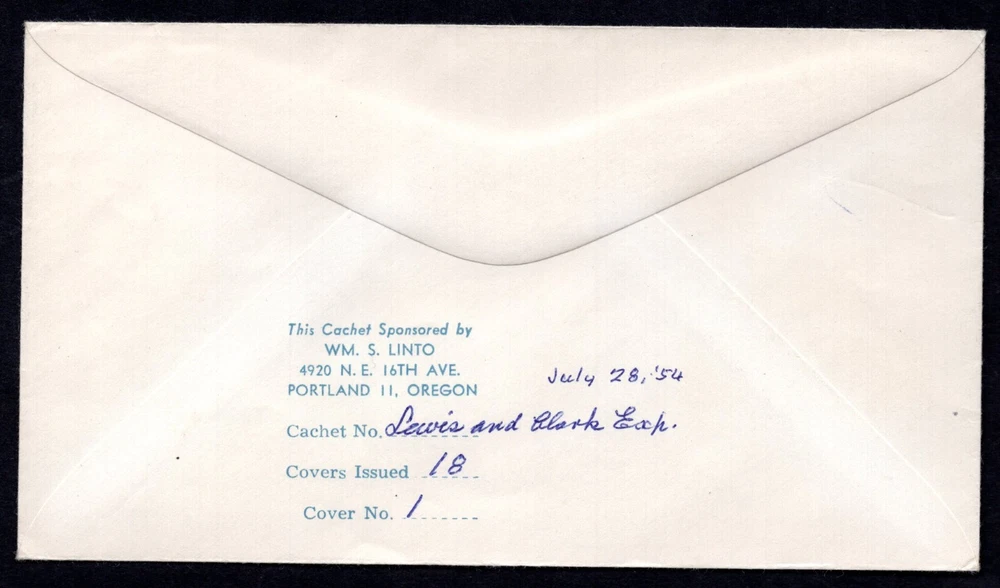 This Cachet Sponsored by
WM. S. LINTO
4920 N. E. 16TH AVE.
PORTLAND 11, OREGON
July 28, '54
Cachet No. Lewis and Clark Exp.
Covers Issued 18
Cover No. 1